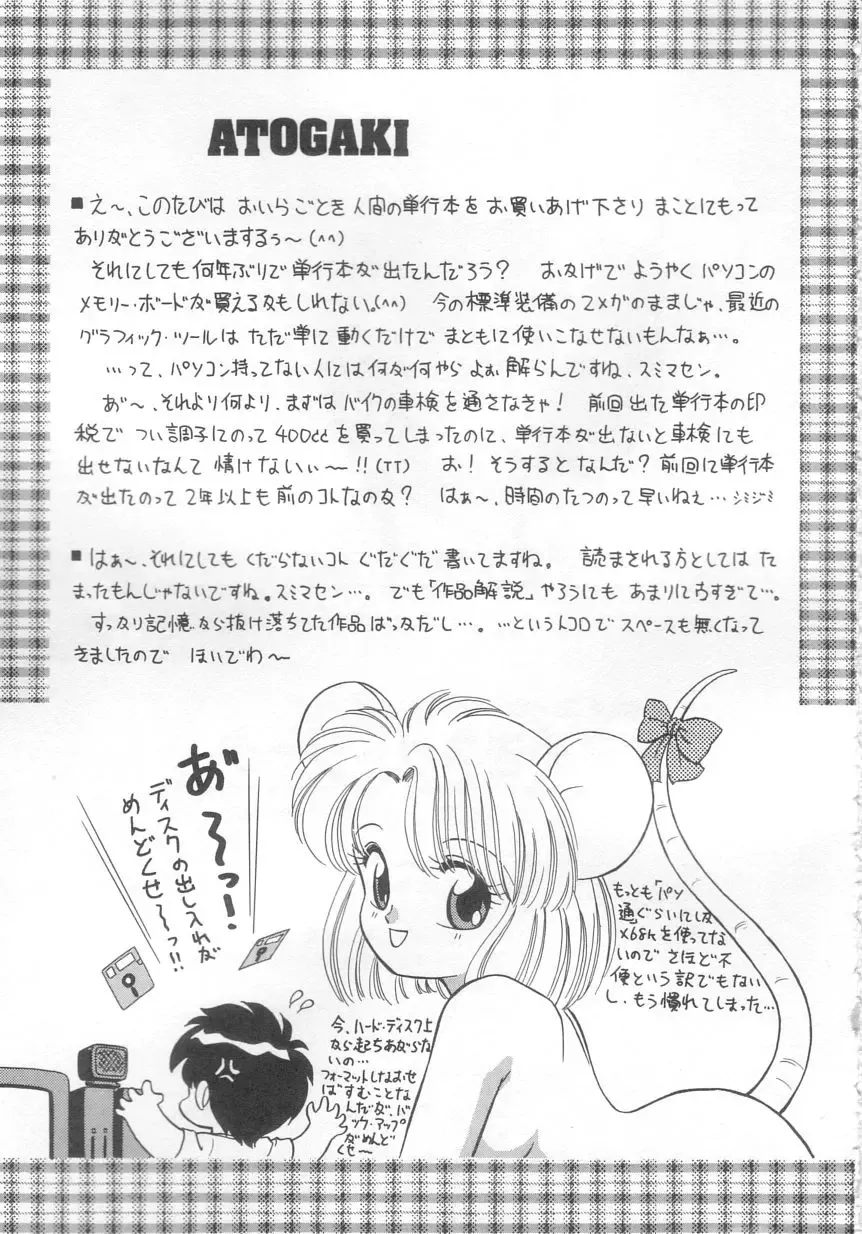 ATOGAKI
■え〜、このたびは おいらごとき人間の単行本を お買いあげ下さり まことにもって
ありがとうございまするぅ〜(^^)
それにしても何年ぶりで単行本が出たんだろう? おかげで ようやく パソコンの
メモリー・ボードが買えるかもしれない。(^^) 今の標準装備の2メガのままじゃ、最近の
グラフィック・ツールは ただ単に 動くだけで まともに使いこなせないもんなぁ…。
…って、パソコン持ってない人には何が何やら よぉ解らんですね、スミマセン。
あ゛〜、それより何より、まずは バイクの車検を通さなきゃ! 前回出た単行本の印
税で つい調子にのって 400ccを買ってしまったのに、単行本が出ないと車検にも
出せないなんて 情けないぃ〜!!(TT) お! そうすると なんだ? 前回に単行本
が出たのって 2年以上も前のコトなのか? はぁ〜、時間のたつのって早いねぇ…シミジミ
■はぁ〜、それにしても くだらないコト ぐだぐだ書いてますね。 読まされる方としては た
まったもんじゃないですね。スミマセン…。 でも「作品解説」やろうにも あまりに古すぎて…。
すっかり記憶から抜け落ちてた作品ばっかだし…。 …というトコロで スペースも無くなって
きましたので ほいでわ〜
あ゛〜っ!
ディスクの出し入れが
めんどくせ〜っ!!
今、ハード・ディスク上
から起ちあがらな
いの…
フォーマットしなおせ
ば すむことな
んだが、バ
ック・アップ
がめんど
くせ〜
もっとも「パソ
通」ぐらいにしか
X68kを使ってな
いので さほど不
便という訳でもない
し、もう慣れてしまった…